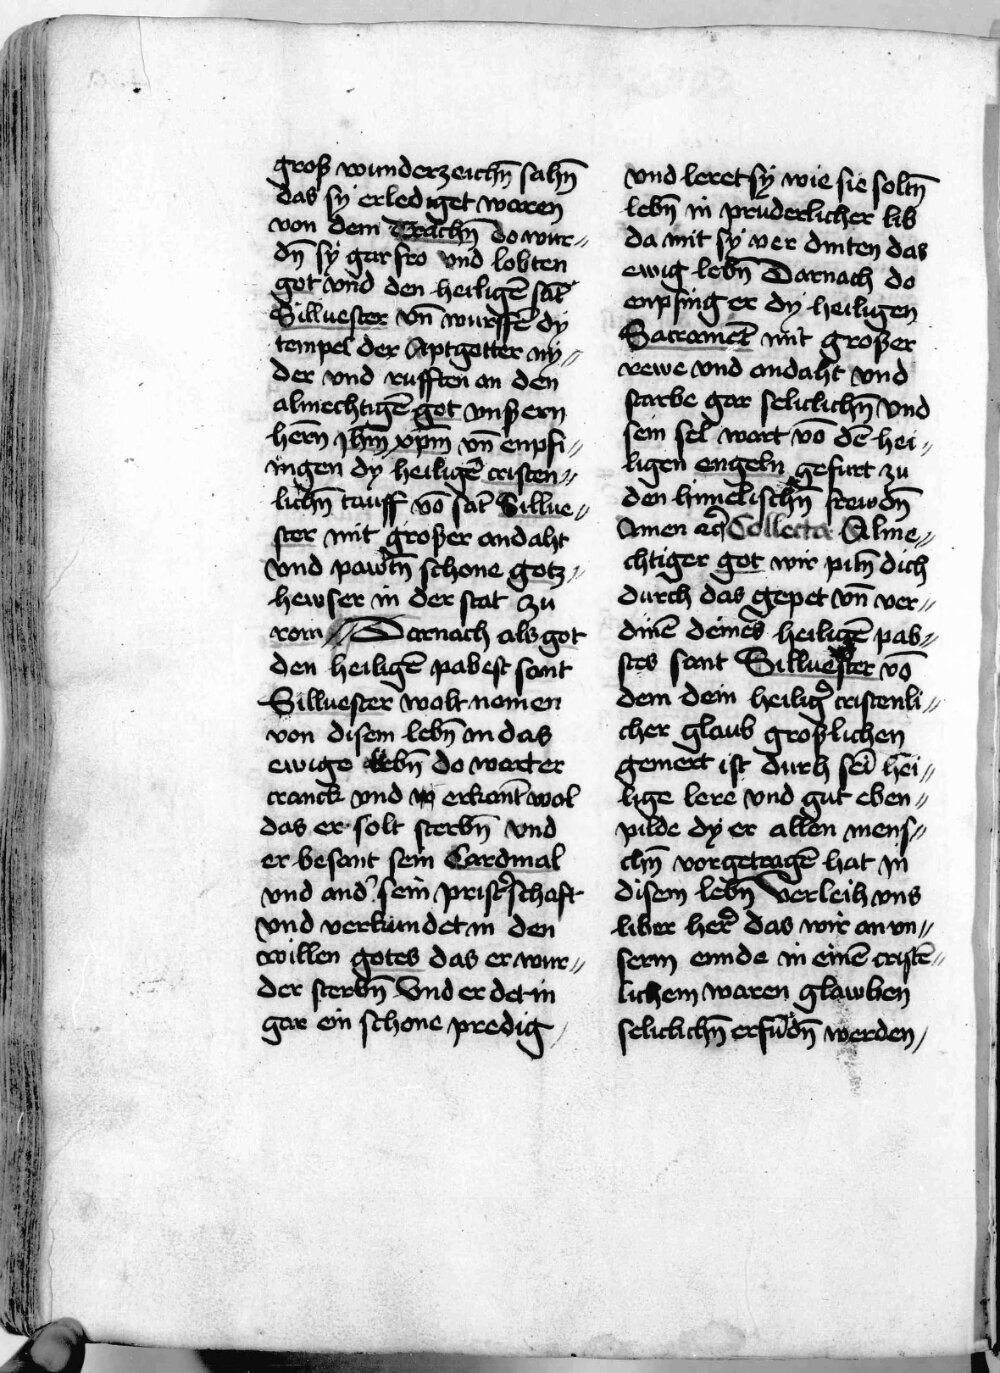 groß wunderzeichn̄ sahn̄
das sÿ erlediget waren
von dem Trachn̄ do wur⸗
dn̄ sÿ gar fro vnd lobten
got vnd den heiligē sāt
Silluester vn̄ wurffē dÿ
tempel der Aptgotter nÿ⸗
der vnd rufften an den
almechtigē got vnßern
hern̄ jhm̄ xpm̄ vn̄ enpfi⸗
ingen dy heiligē cristen⸗
lichn̄ tauff vō sāt Sillue⸗
ster mit großer andaht
vnd pawtn̄ schone gotz⸗
hewser in der stat zu
rom // Darnach als got
den heiligē pabest sant
Silluester wolt nemen
von disem lebn̄ in das
ewige lebn̄ do wart er
cranck vnd erkant wol
das er solt sterbn̄ vnd
er besant sein Cardinal
vnd and̕ sein pristerschaft
vnd verkundet in den
willen gotes das er wur⸗
der sterbn̄ Vnd er det in
gar ein schone predig
vnd leret sÿ wie sie soltn̄
lebn̄ in pruderlicher lib
da mit sÿ ver dinten das
ewig lebn̄ Darnach do
enpfing er dÿ heiligen
Sacramēt mit großer
rewe vnd andaht vnd
starbe gar seliclichn̄ vnd
sein sel wart vō dē hei⸗
ligen engeln gefurt zu
den himelischn̄ frewdn̄
Amen Collecta Alme⸗
chtiger got wir pitn̄ dich
durch das gepet vn̄ ver⸗
dinē deines heiligē pab⸗
stes sant Silluester vō
dem dein heilig̕ cristenli⸗
cher glaub großlichen
gemert ist durh sei̅ hei⸗
lige lere vnd gut eben⸗
pilde dy er allen mens⸗
chn̄ vorgetragē hat in
disem lebn̄ Verleih vns
liber her̕ das wir an vn⸗
serm ennde in einē cristē⸗
lichem waren glawben
seliclichn̄ erfūdn̄ werden